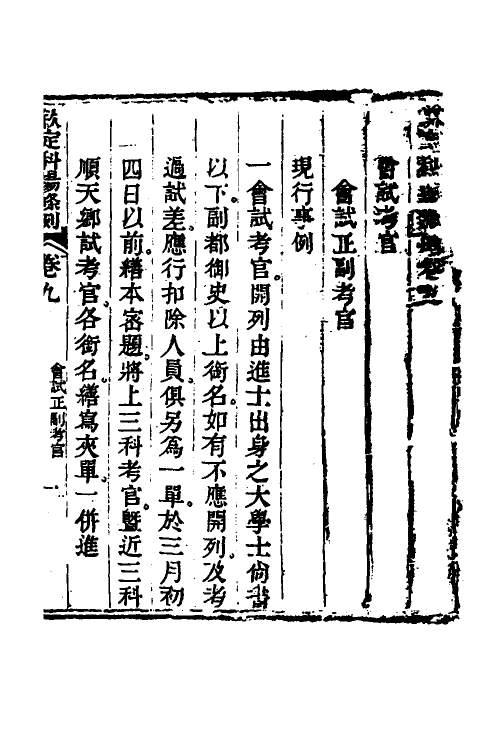 欽定科場條例卷九
會試考官
會試正副考官
現行事例
一會試考官開列由進士出身之大學士尙書
以下副都御史以上銜名如有不應開列及考
過試差應行扣除人員俱另為一單於三月初
四日以前繕本密題將上三科考官曁近三科
順天鄉試考官各銜名繕寫夾單一併進
欽定科場條例
卷九
會試正副考官
一